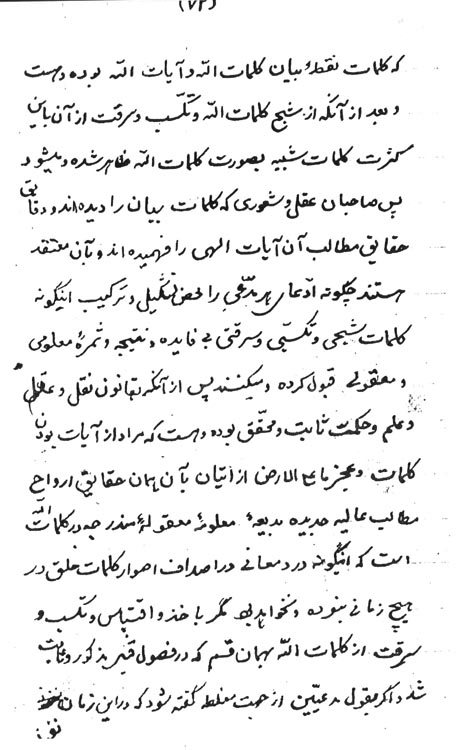 (٧٢)
که کلمات نقطهٔ بیان کلمات الله و آیات الله بوده و هست
و بعد از آنکه از شبح کلمات الله و تکسّب و سرقت از آن باین
کثرت کلمات شبیه بصورت کلمات الله ظاهر شده و میشود
پس صاحبان عقل و شعوری که کلمات بیان را دیده‌اند و دقایق
حقایق مطالب آن آیات الهی را فهمیده‌اند و بآن معتقد
هستند چگونه ادّعای هر مدّعی را محض تشکیل و ترکیب اینگونه
کلمات شبحی و تکسّبی و سرقتی بی فایده و نتیجه و ثمرهٔ معلومی
و معقولی قبول کرده و میکنند پس از آنکه بقانون نقل و عقل
و علم و حکمت ثابت و محقّق بوده و هست که مراد از آیات بودن
کلمات و عجز ما علی الارض از اتیان بآن همان حقایق ارواح
مطالب عالیه جدیده بدیعهٔ معلومهٔ معقولهٔ مندرجه در کلمات الله
است که اینگونه درد معانی در اصداف اصوار کلمات خلق در
هیچ زمانی نبوده و نخواهد بود مگر باخذ و اقتباس و تکسب و
سرقت از کلمات الله بهمان قسم که در فصول قبل مذکور و ثابت
شد و اگر بقول مدعیّین از جهت مغلطه گفته شود که در این زمان